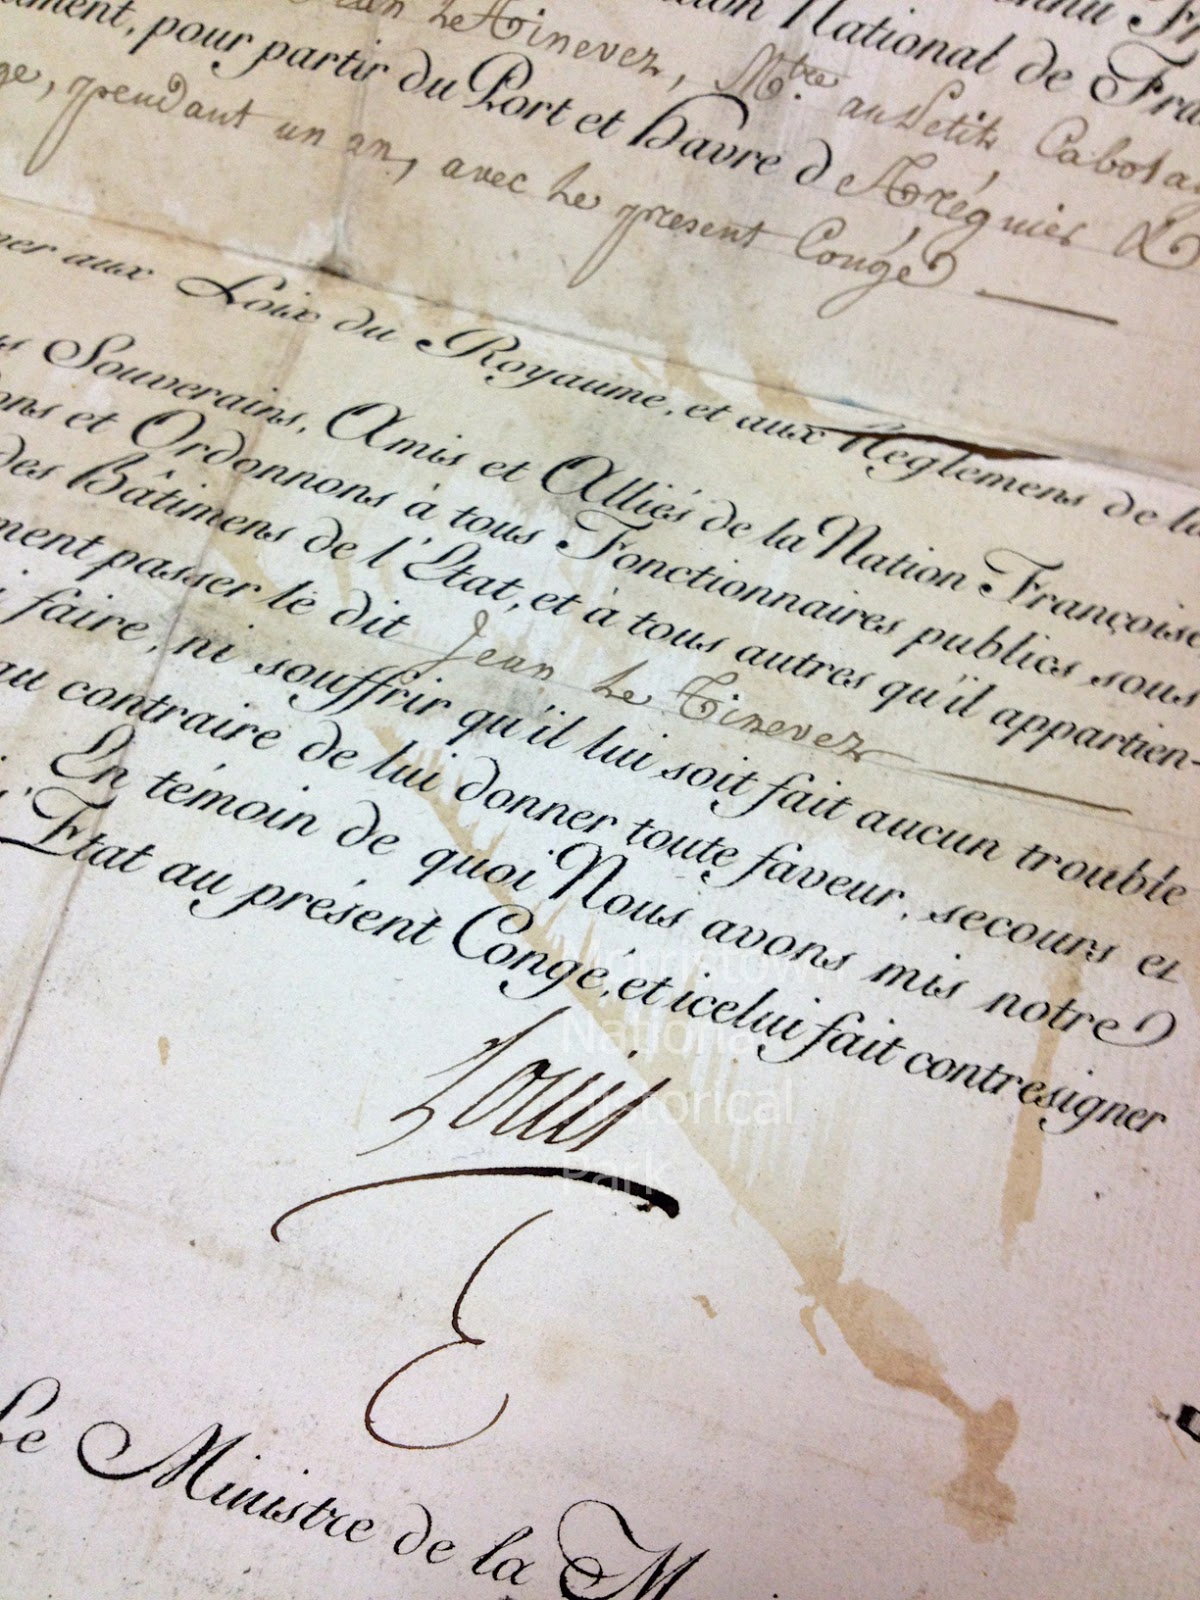 National de
Jean Le Tinevez, Mtre au Petit Cabotag
pour partir du Port et Havre d Tréguier &
ge, pendant un an, avec Le present Congé
aux Loix du Royaume, et aux Réglemens de la
Souverains, Amis et Alliés de la Nation Françoise
et Ordonnons à tous Fonctionnaires publics sous
des Bâtimens de l'Etat, et à tous autres qu'il appartien-
ment passer le dit Jean Le Tinevez
faire, ni souffrir qu'il lui soit fait aucun trouble
au contraire de lui donner toute faveur, secours et
En témoin de quoi Nous avons mis notre
l'Etat au présent Congé, et icelui fait contresigner
Louis
Le Ministre de la M
Morristown
National
Historical
Park